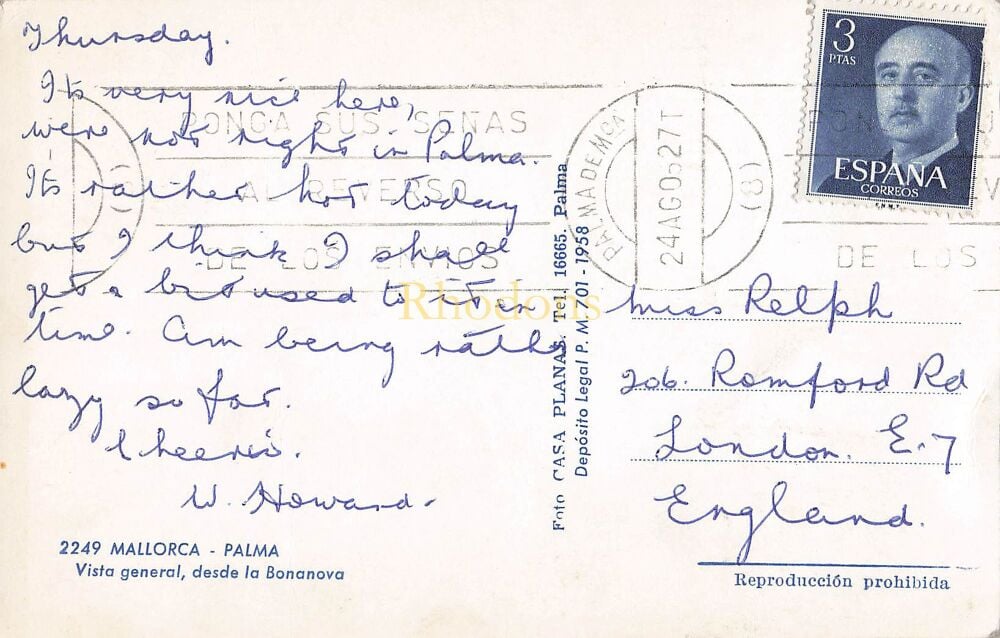 Thursday.
Its very nice here,
were not right in Palma.
Its rather hot today
but I think I shall
get a bit used to it in
time. Am being rather
lazy so far.
Cheerio.
W. Howard.
2249 MALLORCA - PALMA
Vista general, desde la Bonanova
Foto CASA PLANAS. Tel. 16665. Palma
Depósito Legal P. M. 701 - 1958
3
PTAS
ESPAÑA
CORREOS
PONGA SUS SEÑAS
AL REVERSO
DE LOS ENVIOS
PALMA DE MCA
24 AGO
(8)
DE LOS
Miss Relph
206. Romford Rd
London. E.7
England.
Reproducción prohibida
Rhodons